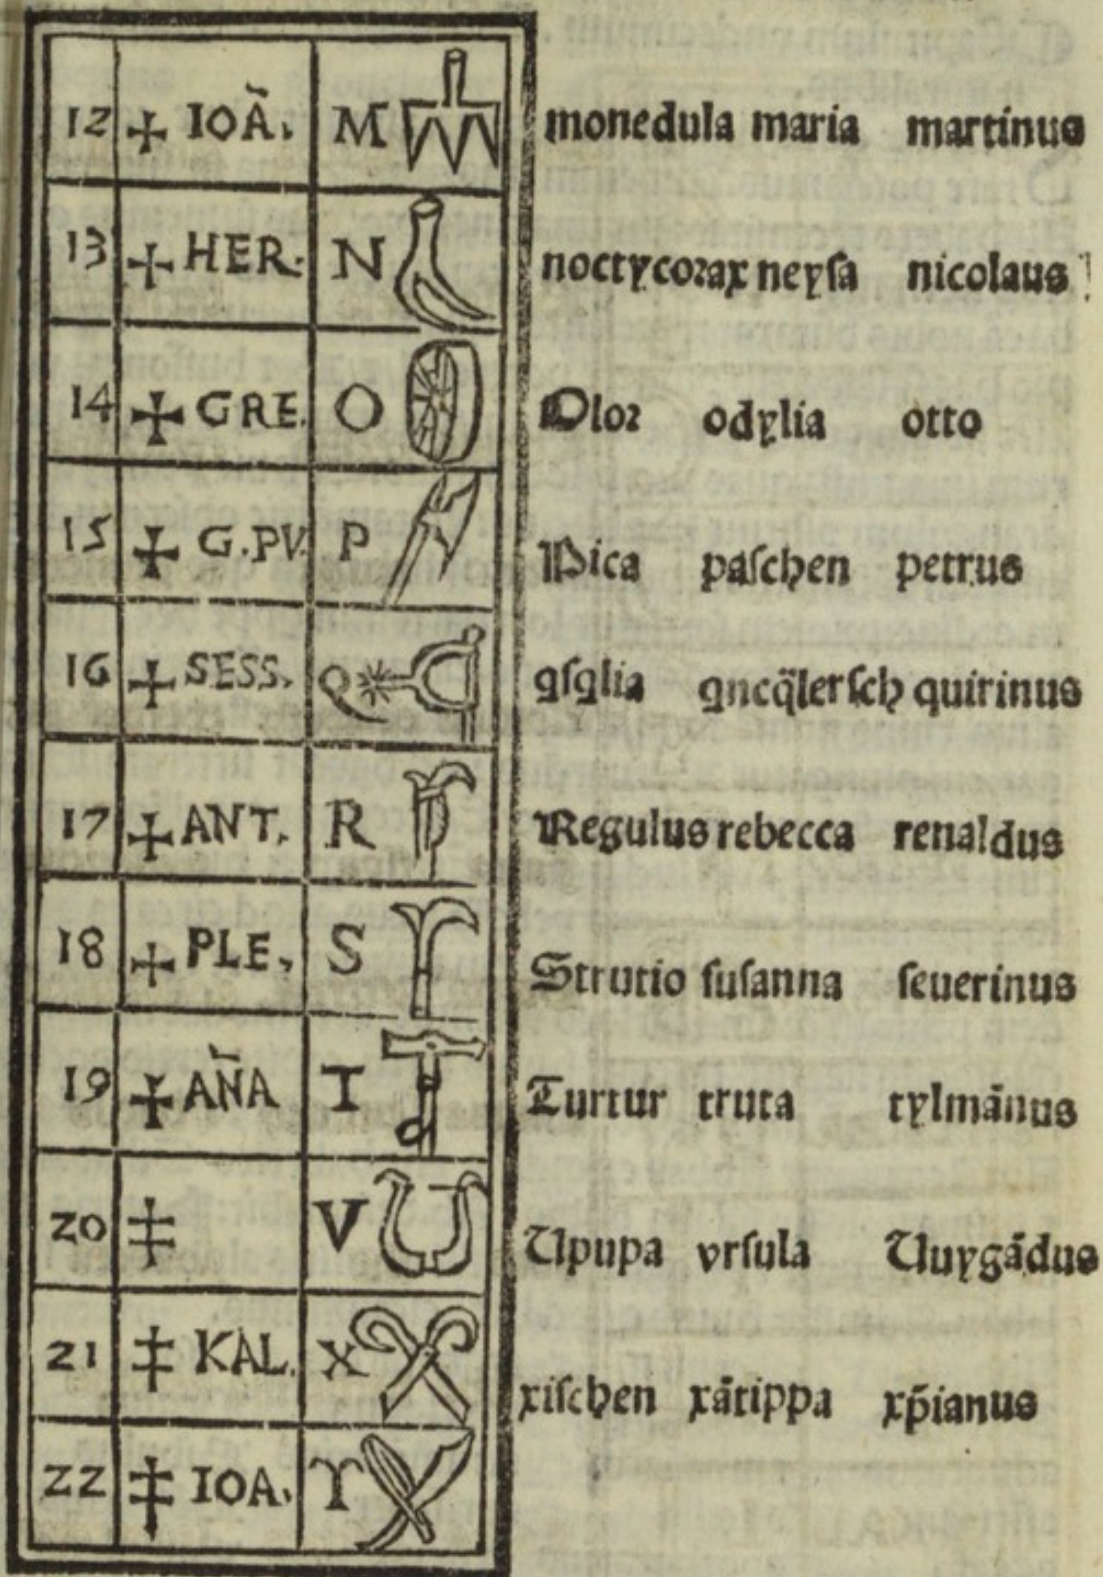 12 ✠ IOÃ. M monedula maria martinus
13 ✠ HER. N noctycorax neyſa nicolaus
14 ✠ GRE. O Olor odylia otto
15 ✠ G.PV. P Pica paſchen petrus
16 ✠ SESS. Q qſqlia qncq̃lerſch quirinus
17 ✠ ANT. R Regulus rebecca renaldus
18 ✠ PLE. S Strutio ſuſanna ſeuerinus
19 ✠ AÑA T Turtur truta tylmãnus
20 ‡ V Upupa vrſula Uuygãdus
21 ‡ KAL. X xiſchen xãtippa xp̃ianus
22 ‡ IOA. Y